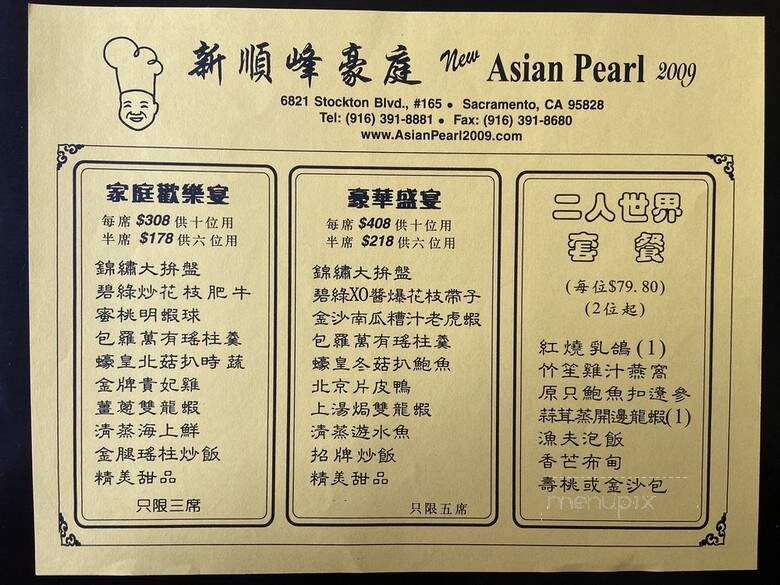 新順峰豪庭 New Asian Pearl 2009
6821 Stockton Blvd., #165 • Sacramento, CA 95828
Tel: (916) 391-8881 • Fax: (916) 391-8680
www.AsianPearl2009.com
家庭歡樂宴
每席 $308 供十位用
半席 $178 供六位用
錦繡大拚盤
碧綠炒花枝肥牛
蜜桃明蝦球
包羅萬有瑤柱羹
蠔皇北菇扒時蔬
金牌貴妃雞
薑蔥雙龍蝦
清蒸海上鮮
金腿瑤柱炒飯
精美甜品
只限三席
豪華盛宴
每席 $408 供十位用
半席 $218 供六位用
錦繡大拚盤
碧綠XO醬爆花枝帶子
金沙南瓜糟汁老虎蝦
包羅萬有瑤柱羹
蠔皇冬菇扒鮑魚
北京片皮鴨
上湯焗雙龍蝦
清蒸遊水魚
招牌炒飯
精美甜品
只限五席
二人世界
套餐
(每位$79.80)
(2位起)
紅燒乳鴿(1)
竹笙雞汁燕窩
原只鮑魚扣遼參
蒜茸蒸開邊龍蝦(1)
漁夫泡飯
香芒布甸
壽桃或金沙包
menupix